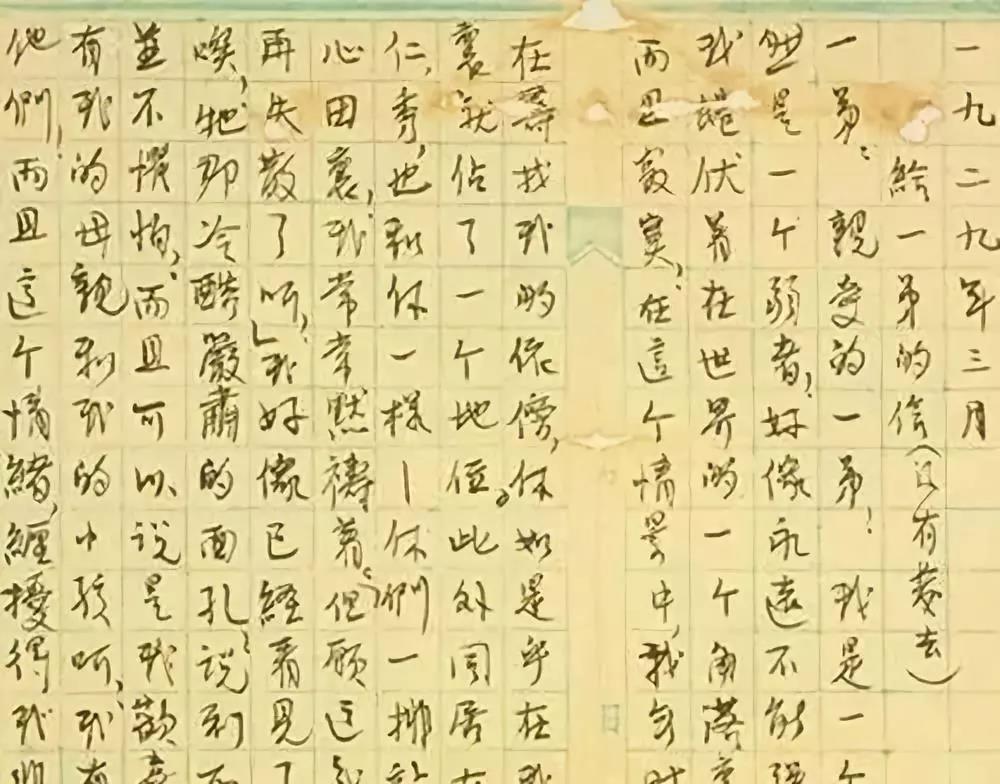 一九二九年三月
給一弟的信(沒有發去)
一弟:親愛的一弟!我是一个
然是一个弱者,好像永遠不能
我蜷伏着在世界的一个角落
而且寂寞,在這个情景中,我
在尋找我的依傍,你如是乎在我
裏就佔了一个地位。此外同居在
仁,秀,也和你一樣—你們一排站
心田裏,我常常默禱着:但願這
再失散了呵,」我好像已經看見了
唉,牠那冷酷嚴肅的面孔,說到
並不惧怕,而且可以說是我歡
有我的母親和我的小孩呵,我有
他們,而且這个情緒,纏擾得我